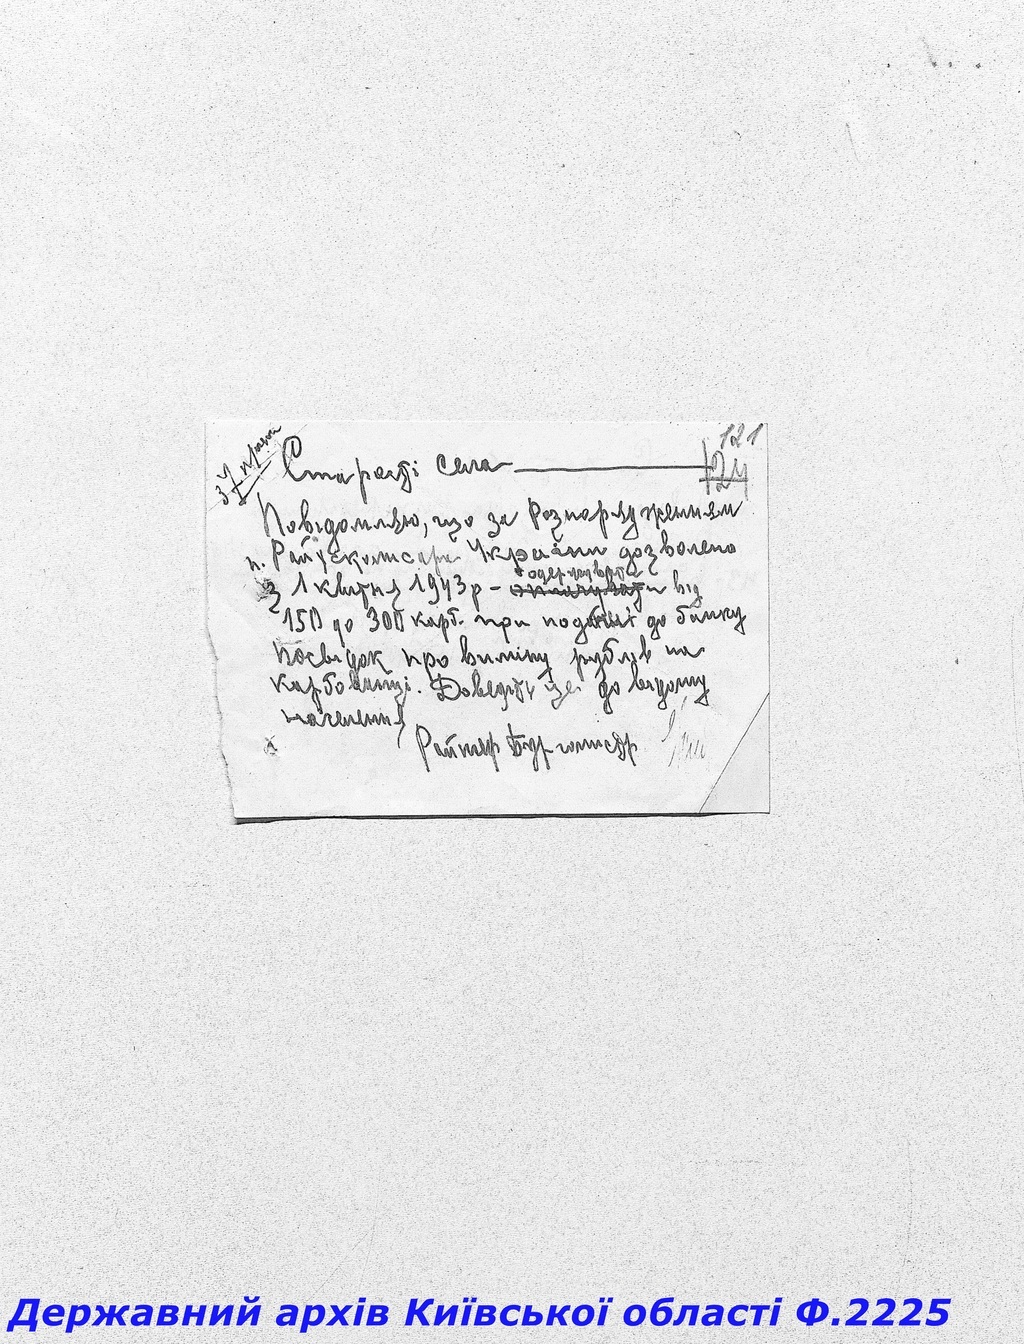 121
124
Старості села
Повідомляю, що за Розпорядженням
п. Райхскомісара України дозволено
з 1 квітня 1943 р - одержувати від
150 до 300 карб. при подачі до банку
посвідок про виміну рублів на
карбованці. Доведіть це до відому
населення
Райшеф Бургомістр
Державний архів Київської області Ф.2225